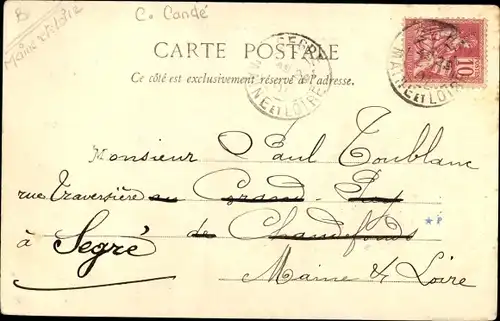 B
Maine et Loire
C. Candé
CARTE POSTALE
Ce côté est exclusivement réservé à l'adresse.
SEGRÉ
MAINE ET LOIRE
MAINE ET LOIRE
10
Monsieur Paul Toublanc
rue Traversière au Grand
à Segré de Chandefonds
Maine & Loire